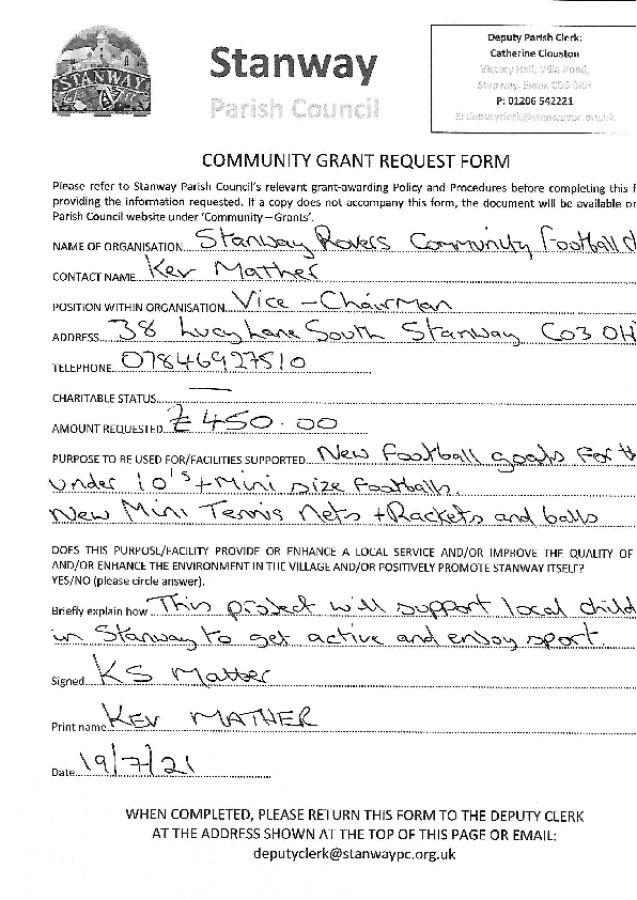 STANWAY
Stanway
Parish Council
Deputy Parish Clerk:
Catherine Clouston
Victory Hall, Villa Road,
Stanway, Essex CO3 0RH
P: 01206 542221
E: deputyclerk@stanwaypc.org.uk
COMMUNITY GRANT REQUEST FORM
Please refer to Stanway Parish Council's relevant grant-awarding Policy and Procedures before completing this f
providing the information requested. If a copy does not accompany this form, the document will be available or
Parish Council website under 'Community – Grants'.
NAME OF ORGANISATION Stanway Rovers Community Football
CONTACT NAME Kev Mather
POSITION WITHIN ORGANISATION Vice - Chairman
ADDRESS 38 Lucy Lane South Stanway CO3 0H
TELEPHONE 07846927510
CHARITABLE STATUS —
AMOUNT REQUESTED £450.00
PURPOSE TO BE USED FOR/FACILITIES SUPPORTED New football goals for th
under 10's + Mini size footballs.
New Mini Tennis Nets + Rackets and balls
DOES THIS PURPOSE/FACILITY PROVIDE OR ENHANCE A LOCAL SERVICE AND/OR IMPROVE THE QUALITY OF
AND/OR ENHANCE THE ENVIRONMENT IN THE VILLAGE AND/OR POSITIVELY PROMOTE STANWAY ITSELF?
YES/NO (please circle answer).
Briefly explain how This project will support local child
in Stanway to get active and enjoy sport.
Signed KS Mather
Print name KEV MATHER
Date 19/7/21
WHEN COMPLETED, PLEASE RETURN THIS FORM TO THE DEPUTY CLERK
AT THE ADDRESS SHOWN AT THE TOP OF THIS PAGE OR EMAIL:
deputyclerk@stanwaypc.org.uk